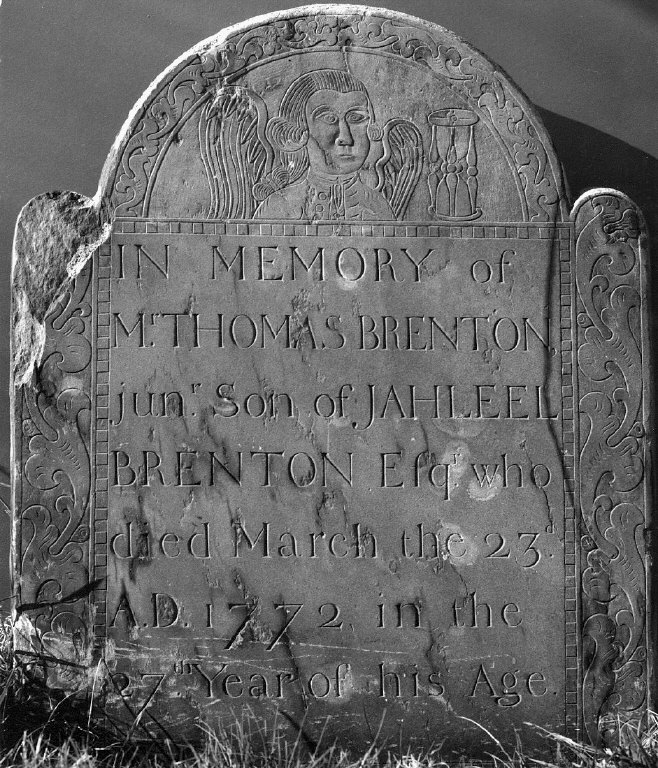 IN MEMORY of
Mr. THOMAS BRENTON,
junr. Son of JAHLEEL
BRENTON Eſqr. who
died March the 23d.
A.D. 1772, in the
27th Year of his Age.